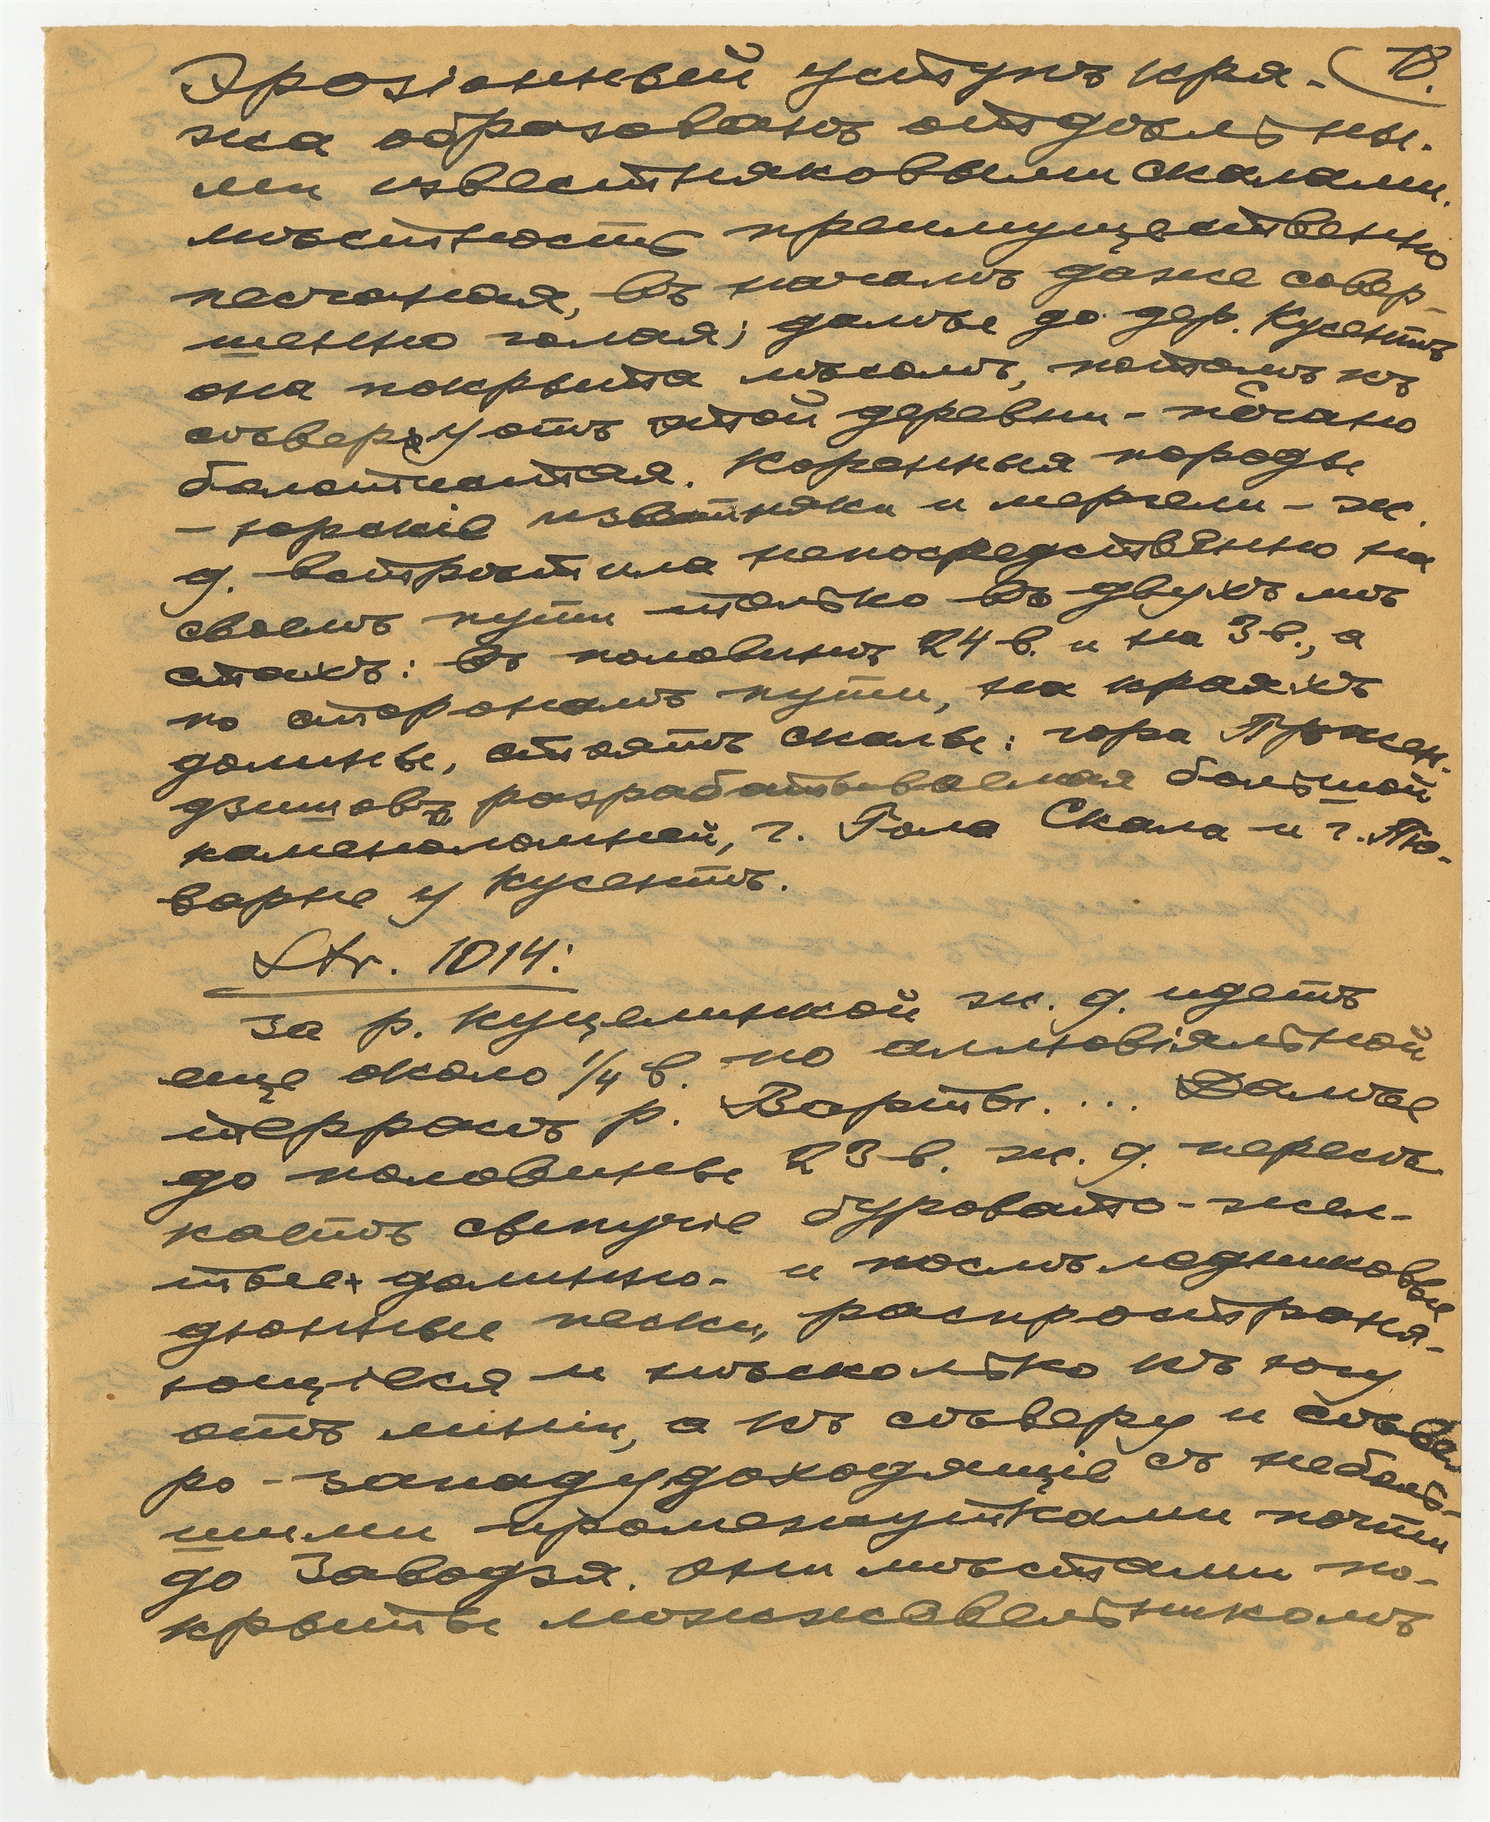 18.
Эрозіонный уступъ кря-
жа образованъ отдѣльны-
ми известняковыми скалами.
мѣстность преимущественно
песчаная, въ началѣ даже совер-
шенно голая; далѣе до дер. Кусентъ
она покрыта лѣсомъ, потомъ къ
сѣверу отъ этой деревни -
болотистая. Коренныя породы
- юрскіе известняки и мергели - ж.
д. встрѣтила непосредственно на
своемъ пути только въ двухъ мѣ
стахъ: въ половинѣ 24 в. и на 3 в., а
по сторонамъ пути, на краяхъ
долины, стоятъ скалы: гора Пржен-
дзишовъ разрабатываемая большой
каменоломней, г. Гола Скала и г. То-
варне у Кусентъ.
Str. 1014:
За р. Куцелинкой ж. д. идетъ
еще около 1/4 в. по аллювіяльной
террасѣ р. Варты. ... Далѣе
до половины 23 в. ж. д. пересѣ
каетъ сыпучіе буровато-жел-
тые долинно- и послѣледниковые
дюнные пески, распространя-
ющіеся и нѣсколько къ югу
отъ линіи, а къ сѣверу и сѣве
ро-западу доходящіе съ неболь-
шими промежутками почти
до Заводзя. Они мѣстами по-
крыты можжевельникомъ